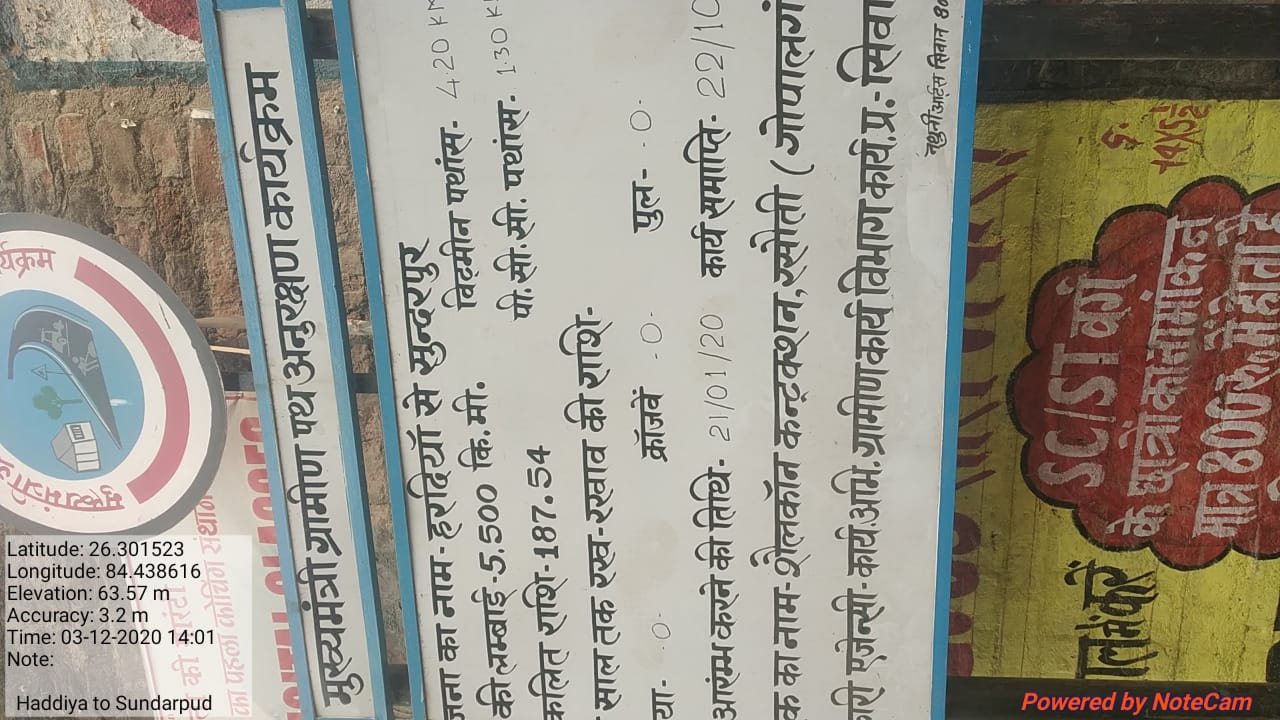 र्यक्रम
मुख्यमंत्री ग्रा
मुख्यमंत्री ग्रामीण पथ अनुरक्षण कार्यक्रम
जना का नाम- हरदियाँ से सुन्दरपुर
की लम्बाई -5.500 कि.मी. बिटुमीन पथांस- 4.20 KM
कलित राशि-187.54 पी.सी.सी. पथांस- 1.30 K
साल तक रख-रखाव की राशि-
या- -0- क्रॉजवे -0- पुल- -0-
आरंम्भ करने की तिथि- 21/01/20 कार्य समाप्ति- 22/10
क का नाम-शैलकॉन कन्ट्रक्शन,रसौती ( गोपालगं
कारी एजेन्सी-कार्य.अभि.ग्रामीण कार्य विभाग कार्य.प्र.-सिवा
नथुनी आर्टस सिवान
की गारंटी
का पहला कोचिंग संस्थान
SC/ST को
के छात्रों का नामांकन
मात्र 800रू. में होता है
14X5½
Latitude: 26.301523
Longitude: 84.438616
Elevation: 63.57 m
Accuracy: 3.2 m
Time: 03-12-2020 14:01
Note:
Haddiya to Sundarpud
Powered by NoteCam